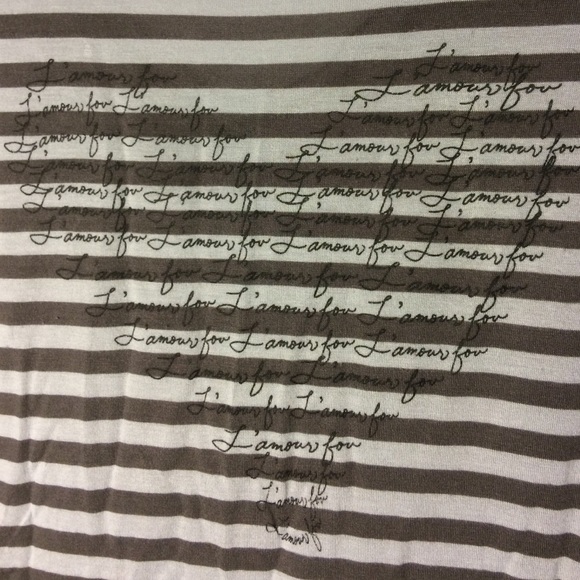 L'amour fou
L'amour fou L'amour fou
L'amour fou L'amour fou L'amour fou L'amour fou
L'amour fou L'amour fou L'amour fou L'amour fou
L'amour fou L'amour fou L'amour fou L'amour fou
L'amour fou L'amour fou L'amour fou L'amour fou
L'amour fou L'amour fou L'amour fou L'amour fou
L'amour fou L'amour fou L'amour fou L'amour fou
L'amour fou L'amour fou L'amour fou
L'amour fou L'amour fou L'amour fou
L'amour fou L'amour fou L'amour fou
L'amour fou L'amour fou
L'amour fou L'amour fou
L'amour fou
L'amour fou
L'amour fou
L'amour